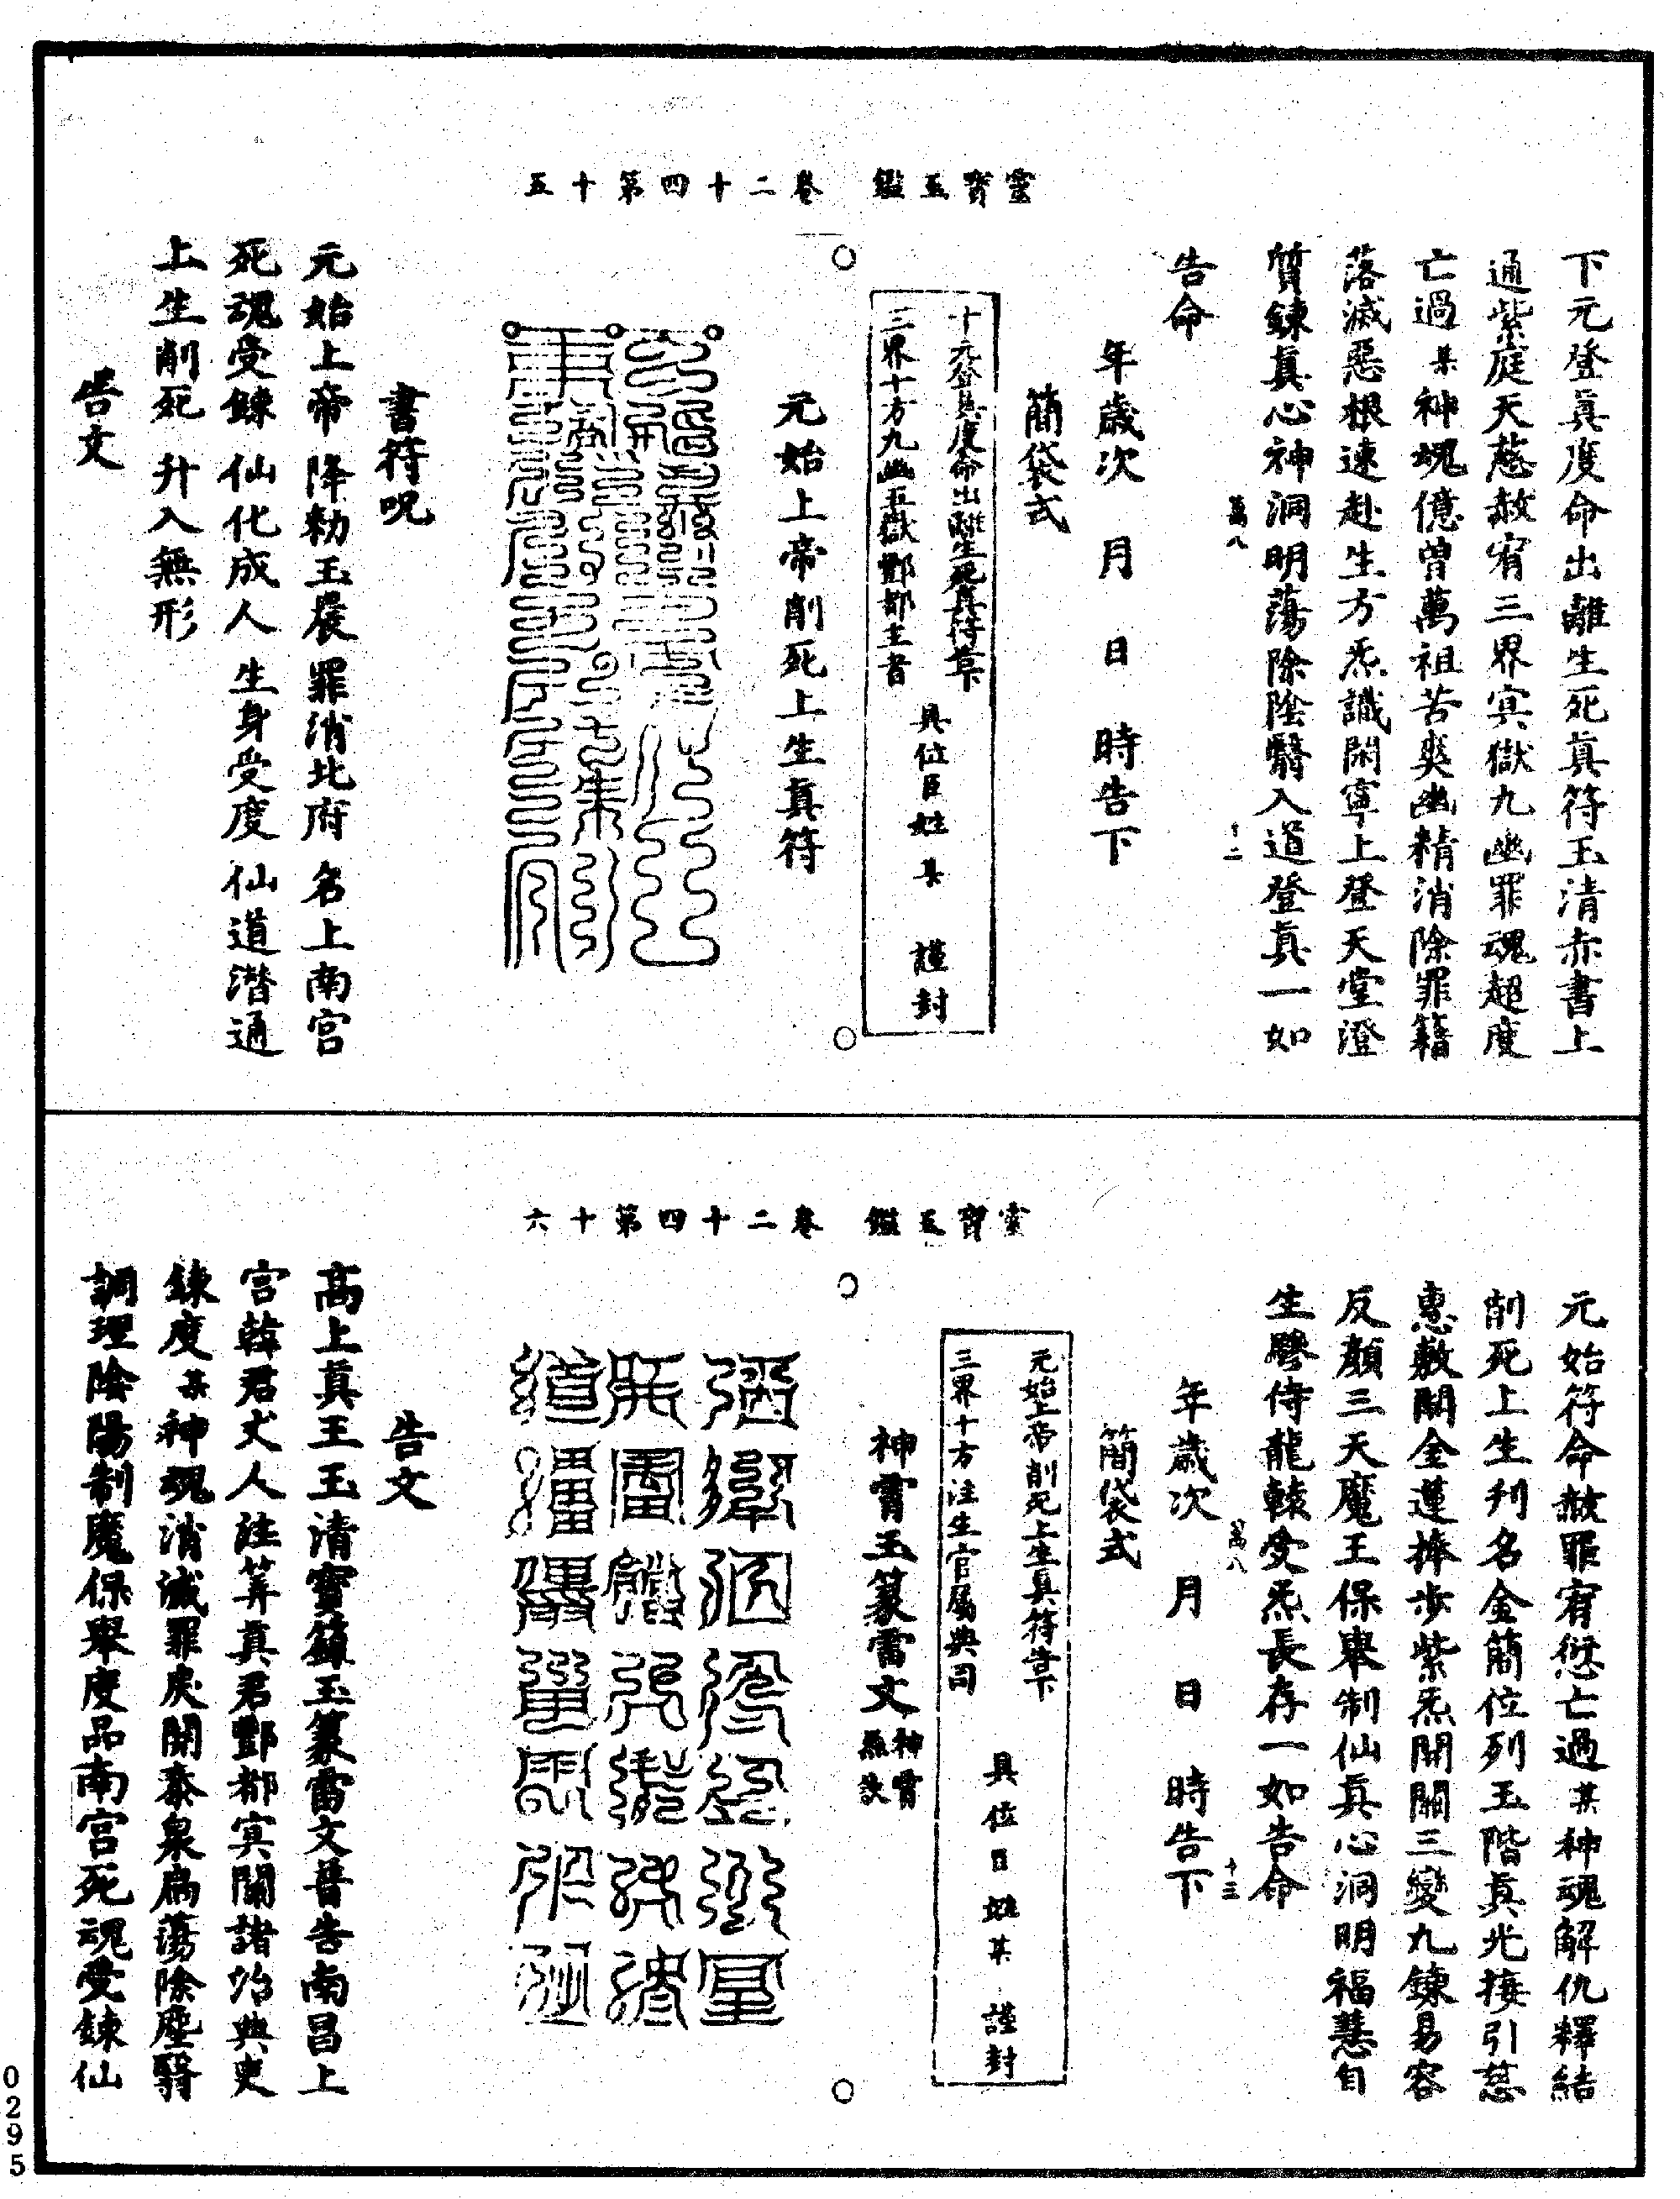 靈寶玉鑑　卷二十四第十五
下元登真度命出離生死真符玉清赤書上
通紫庭天慈赦宥三界冥獄九幽罪魂超度
亡過某神魂億曾萬祖苦爽幽精消除罪籍
落滅惡根速赴生方炁識閑寧上登天堂澄
質鍊真心神洞明蕩除陰翳入道登真一如
萬八　十二
告命
年歲次　月　日　時告下
簡袋式
十元登真度命出離生死真符告下
三界十方九幽五嶽酆都主者
具位臣姓某　謹封
元始上帝削死上生真符
書符呪
元始上帝　降勑玉晨　罪消北府　名上南宮
死魂受鍊　仙化成人　生身受度　仙道潛通
上生削死　升入無形
告文
靈寶玉鑑　卷二十四第十六
元始符命赦罪宥愆亡過某神魂解仇釋結
削死上生列名金簡位列玉階真光接引慈
惠敷開金蓮捧步紫炁開關三變九鍊易容
反顏三天魔王保舉制仙真心洞明福慧自
生驂侍龍轅受炁長存一如告命
萬八　十三
年歲次　月　日　時告下
簡袋式
元始上帝削死上生真符告下
三界十方注生官屬典司
具位臣姓某　謹封
神霄玉篆雷文神霄
告文
高上真王玉清寶籙玉篆雷文普告南昌上
宮韓君丈人注筭真君酆都冥關諸治典吏
鍊度某神魂消滅罪戾開泰泉扃蕩除塵翳
調理陰陽制魔保舉度品南宮死魂受鍊仙
0295